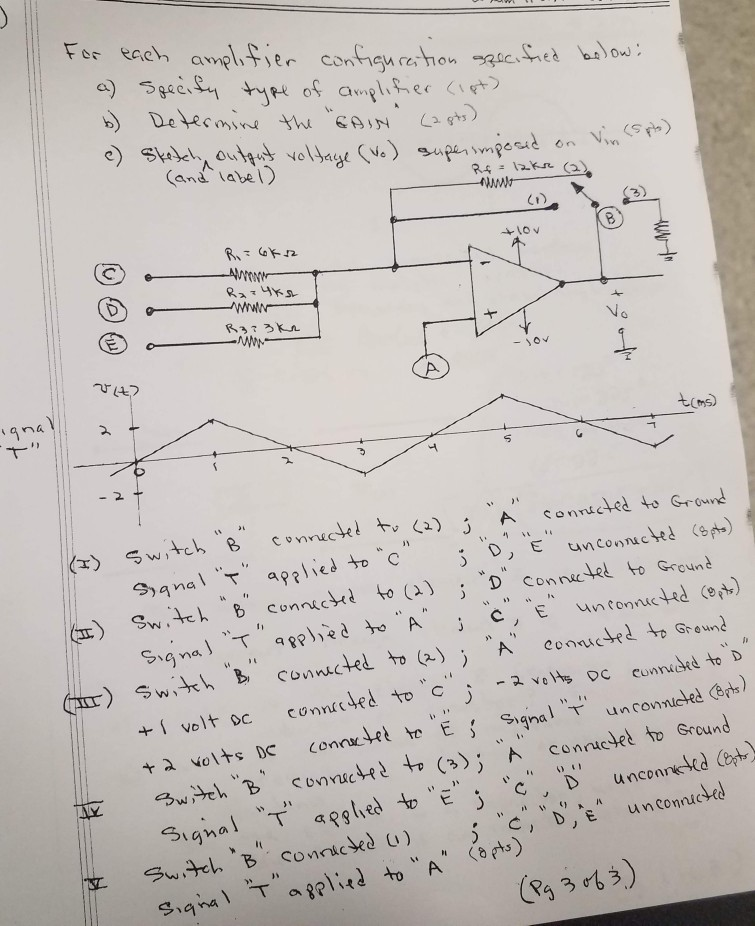 For each amplifier configuration specified below:
a) Specify type of amplifier (1pt)
b) Determine the "GAIN" (2pts)
c) Sketch output voltage (Vo) superimposed on Vin (5pts)
(and label)
Rf = 12KΩ (2)
(1)
(3)
B
+10v
R1 = 6KΩ
C
R2 = 4KΩ
D
R3 = 3KΩ
E
-
+
+
Vo
-10v
A
v(t)
t(ms)
ignal
"T"
2
-2
0
1
2
3
4
5
6
7
(I) Switch "B" connected to (2) ; "A" connected to Ground
Signal "T" applied to "C" ; "D", "E" unconnected (8pts)
(II) Switch "B" connected to (2) ; "D" connected to Ground
Signal "T" applied to "A" ; "C", "E" unconnected (8pts)
(III) Switch "B" connected to (2) ; "A" connected to Ground
+1 volt DC connected to "C" ; -2 volts DC connected to "D"
+2 volts DC connected to "E" ; Signal "T" unconnected (8pts)
IV Switch "B" connected to (3) ; "A" connected to Ground
Signal "T" applied to "E" ; "C", "D" unconnected (8pts)
V Switch "B" connected (1) ; "C", "D", "E" unconnected
Signal "T" applied to "A" (8pts)
(Pg 3 of 3)